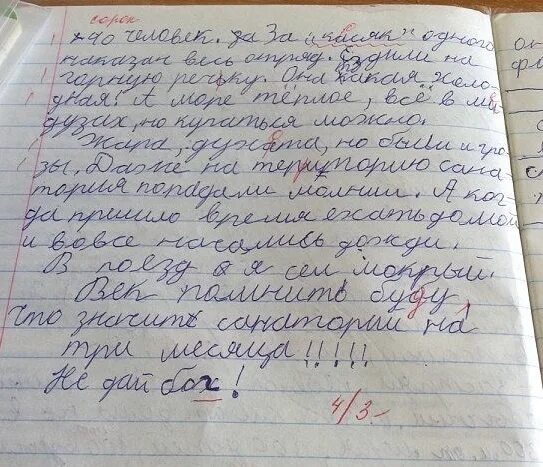 сорок
40 человек. За "касяк" одного
наказан весь отряд. Ездили на
горную речьку. Она какая холо-
дная! А море тёплое, всё в ме-
дузах, но купаться можно.
Жара, духата, но были и гро-
зы. Даже на територию сана-
тория попадали молнии. А ког-
да пришло время ехать домой
и вовсе начались дожди.
В поезд я сел мокрый.
Век помнить буду,
что значить санаторий на
три месяца!!!!!
Не дай бох!
4/3-